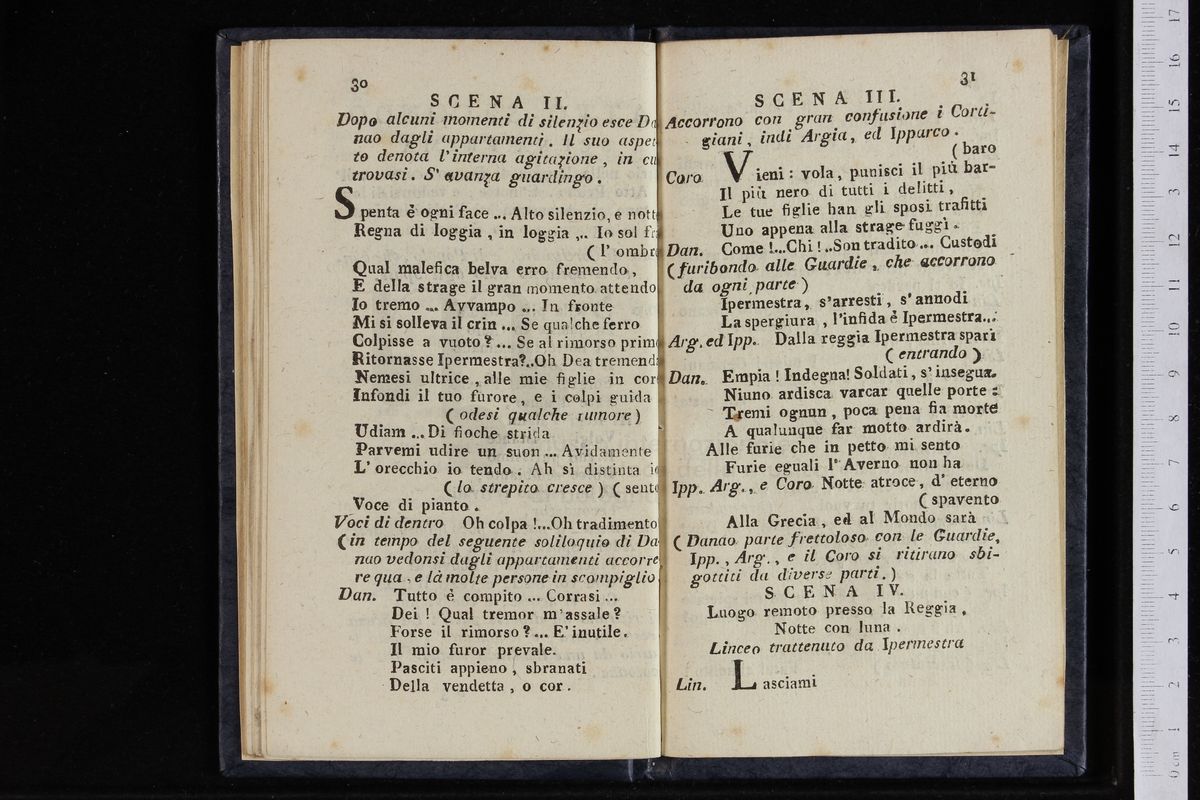 30
SCENA II.
Dopo alcuni momenti di silenzio esce Da
nao dagli appartamenti. Il suo aspet
to denota l'interna agitazione, in cu
trovasi. S'avanza guardingo.
Spenta è ogni face ... Alto silenzio, e notte
Regna di loggia, in loggia ... Io sol fr
( l' ombre
Qual malefica belva erro fremendo,
E della strage il gran momento attendo
Io tremo ... Avvampo ... In fronte
Mi si solleva il crin ... Se qualche ferro
Colpisse a vuoto? ... Se al rimorso prim
Ritornasse Ipermestra?..Oh Dea tremend
Nemesi ultrice, alle mie figlie in cor
Infondi il tuo furore, e i colpi guida
( odesi qualche rumore)
Udiam ... Di fioche strida
Parvemi udire un suon ... Avidamente
L' orecchio io tendo. Ah sì distinta io
( lo strepito cresce ) ( sento
Voce di pianto.
Voci di dentro Oh colpa !...Oh tradimento
(in tempo del seguente soliloquio di Da
nao vedonsi dagli appartamenti accorre
re qua, e là molte persone in scompiglio
Dan. Tutto è compito ... Corrasi ...
Dei ! Qual tremor m'assale?
Forse il rimorso? ... E' inutile.
Il mio furor prevale.
Pasciti appieno, sbranati
Della vendetta, o cor.
31
SCENA III.
Accorrono con gran confusione i Corti-
giani, indi Argia, ed Ipparco.
( baro
Coro Vieni: vola, punisci il più bar-
Il più nero di tutti i delitti,
Le tue figlie han gli sposi trafitti
Uno appena alla strage fuggì.
Dan. Come !...Chi !..Son tradito ... Custodi
(furibondo alle Guardie, che accorrono
da ogni parte)
Ipermestra, s'arresti, s'annodi
La spergiura, l'infida è Ipermestra...
Arg. ed Ipp. Dalla reggia Ipermestra sparì
( entrando )
Dan. Empia ! Indegna! Soldati, s'insegua.
Niuno ardisca varcar quelle porte :
Tremi ognun, poca pena fia morte
A qualunque far motto ardirà.
Alle furie che in petto mi sento
Furie eguali l'Averno non ha
Ipp. Arg., e Coro Notte atroce, d'eterno
( spavento
Alla Grecia, ed al Mondo sarà
( Danao parte frettoloso con le Guardie,
Ipp., Arg., e il Coro si ritirano sbi-
gottiti da diverse parti.)
SCENA IV.
Luogo remoto presso la Reggia,
Notte con luna.
Linceo trattenuto da Ipermestra
Lin. Lasciami
0 cm 1 2 3 4 5 6 7 8 9 10 11 12 13 14 15 16 17